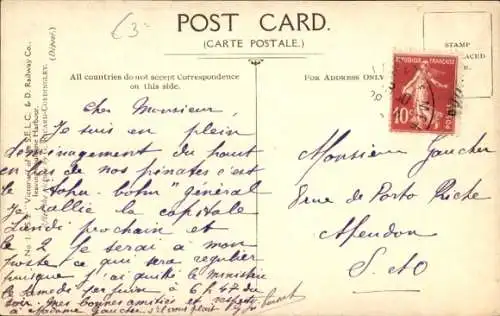 POST CARD.
(CARTE POSTALE.)
All countries do not accept Correspondence
on this side.
FOR ADDRESS ONLY
STAMP
S.E. & C. & D. Railway Co.,
Harbour.
10
Cher Monsieur,
Je suis en plein
déménagement du haut
en bas de nos pénates c'est
le "tohu-bohu" général
Je rallie la capitale
Lundi prochain et
le 2 Je serai à mon
poste ce qui sera régulier
puisque j'ai quitté le Ministère
le samedi 1er juin à 6h 47 du
soir. Mes bonnes amitiés et respects
à Madame Gaucher s'il vous plait
Monsieur Gaucher
8 rue de Porto Riche
Meudon
S. & O